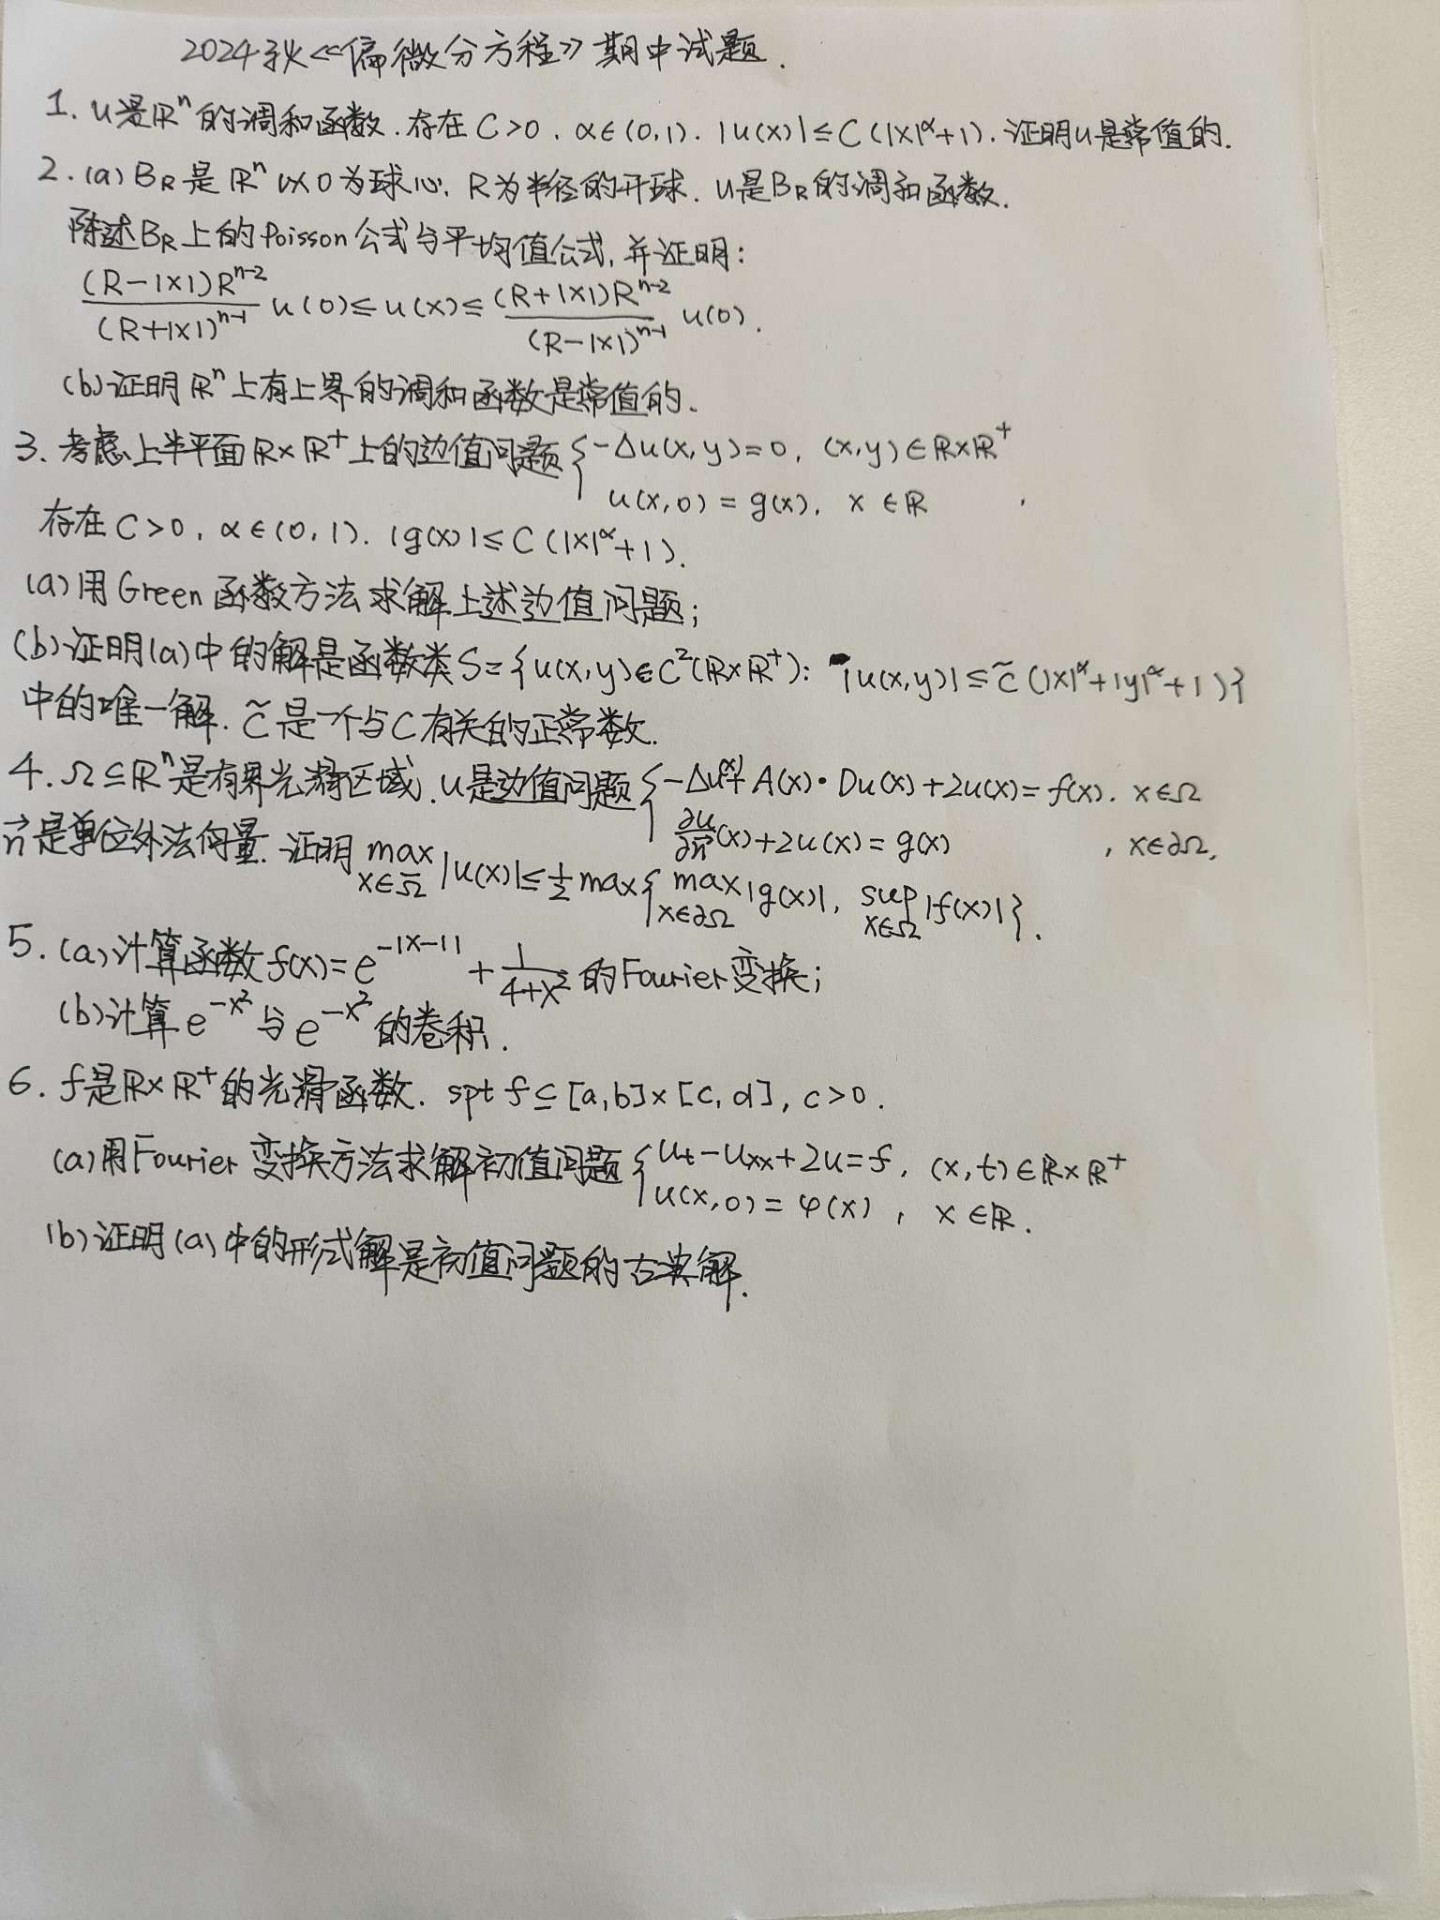 2024秋《偏微分方程》期中试题.
1. u是ℝⁿ的调和函数.存在C>0. α∈(0,1). |u(x)|≤C(|x|^α+1). 证明u是常值的.
2. (a) B_R是ℝⁿ以0为球心, R为半径的开球. u是B_R的调和函数.
陈述B_R上的Poisson公式与平均值公式, 并证明:
(R-|x|)R^{n-2}/(R+|x|)^{n-1} u(0)≤u(x)≤(R+|x|)R^{n-2}/(R-|x|)^{n-1} u(0).
(b)证明ℝⁿ上有上界的调和函数是常值的.
3. 考虑上半平面ℝ×ℝ⁺上的边值问题 { -Δu(x,y)=0, (x,y)∈ℝ×ℝ⁺
u(x,0)=g(x), x∈ℝ ,
存在C>0, α∈(0,1). |g(x)|≤C(|x|^α+1).
(a)用Green函数方法求解上述边值问题;
(b)证明(a)中的解是函数类S={u(x,y)∈C²(ℝ×ℝ⁺): |u(x,y)|≤C̃(|x|^α+|y|^α+1)}
中的唯一解. C̃是一个与C有关的正常数.
4. Ω⊆ℝⁿ是有界光滑区域.u是边值问题 { -Δu(x)+A(x)·Du(x)+2u(x)=f(x). x∈Ω
∂u/∂n⃗(x)+2u(x)=g(x) , x∈∂Ω,
n⃗是单位外法向量. 证明 max_{x∈Ω̄}|u(x)|≤½max{max_{x∈∂Ω}|g(x)|, sup_{x∈Ω}|f(x)|}.
5. (a)计算函数f(x)=e^{-|x-1|}+1/(4+x²)的Fourier变换;
(b)计算e^{-x²}与e^{-x²}的卷积.
6. f是ℝ×ℝ⁺的光滑函数. spt f⊆[a,b]×[c,d], c>0.
(a)用Fourier变换方法求解初值问题 { u_t-u_xx+2u=f, (x,t)∈ℝ×ℝ⁺
u(x,0)=φ(x), x∈ℝ.
(b)证明(a)中的形式解是初值问题的古典解.